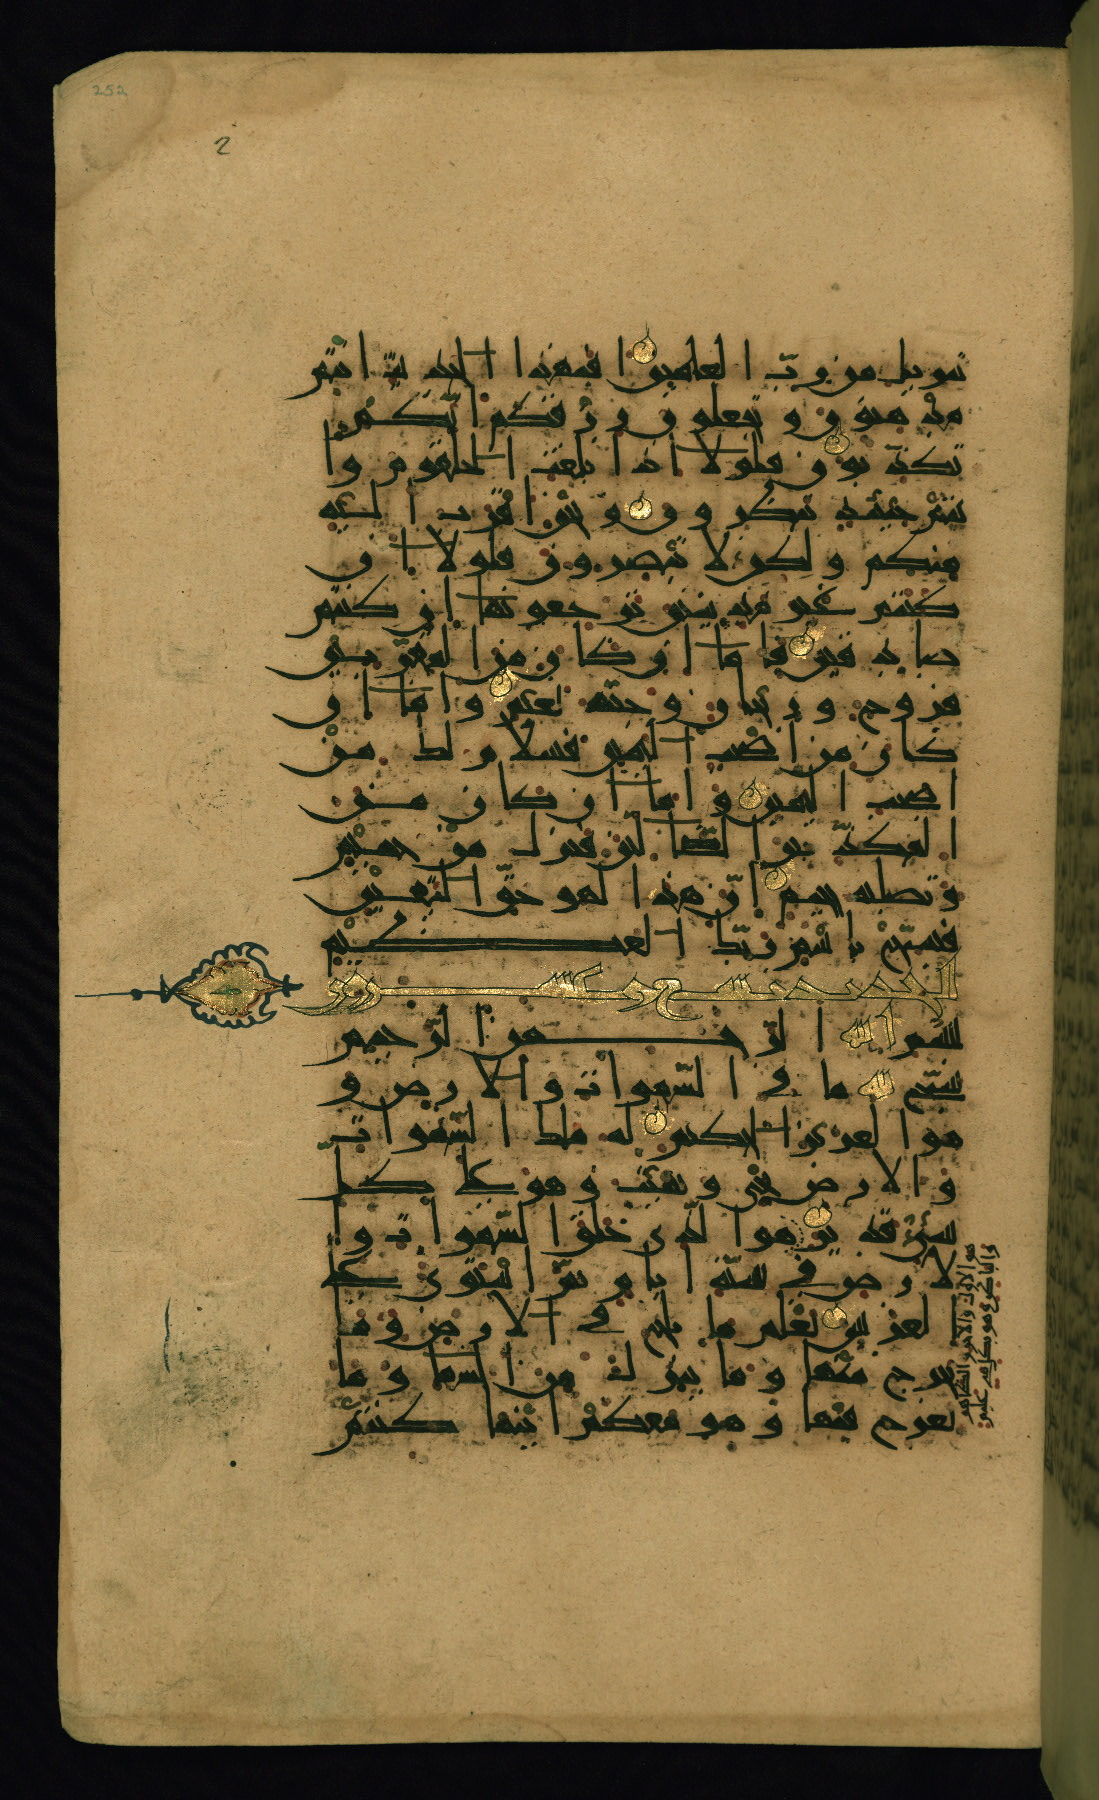 252
2
تنزيل من رب العالمين افبهذا الحديث انتم
مدهنون وتجعلون رزقكم انكم
تكذبون فلولا اذا بلغت الحلقوم وا
نتم حينئذ تنظرون ونحن اقرب اليه
منكم ولكن لا تبصرون فلولا ان
كنتم غير مدينين ترجعونها ان كنتم
صادقين فاما ان كان من المقربين
فروح وريحان وجنة نعيم واما ان
كان من اصحب اليمين فسلام لك من
اصحب اليمين واما ان كان من
المكذّبين الضّالّين فنزل من حميم
وتصلية جحيم انّ هذا لهو حقّ اليقين
فسبّح باسم ربّك العظيم
الحديد تسع وعشرون
بسم الله الرّحمن الرّحيم
سبّح لله ما في السّموات والارض و
هو العزيز الحكيم له ملك السّموات
والارض يحيي ويميت وهو على كل
شيء قدير هو الّذي خلق السّموات وا
لارض في ستّة ايام ثمّ استوى على
العرش يعلم ما يلج في الارض وما
يخرج منها وما ينزل من السما وما
يعرج فيها وهو معكم اينما كنتم
هو الاول والاخر والظاهر
والباطن وهو بكل شيء عليم